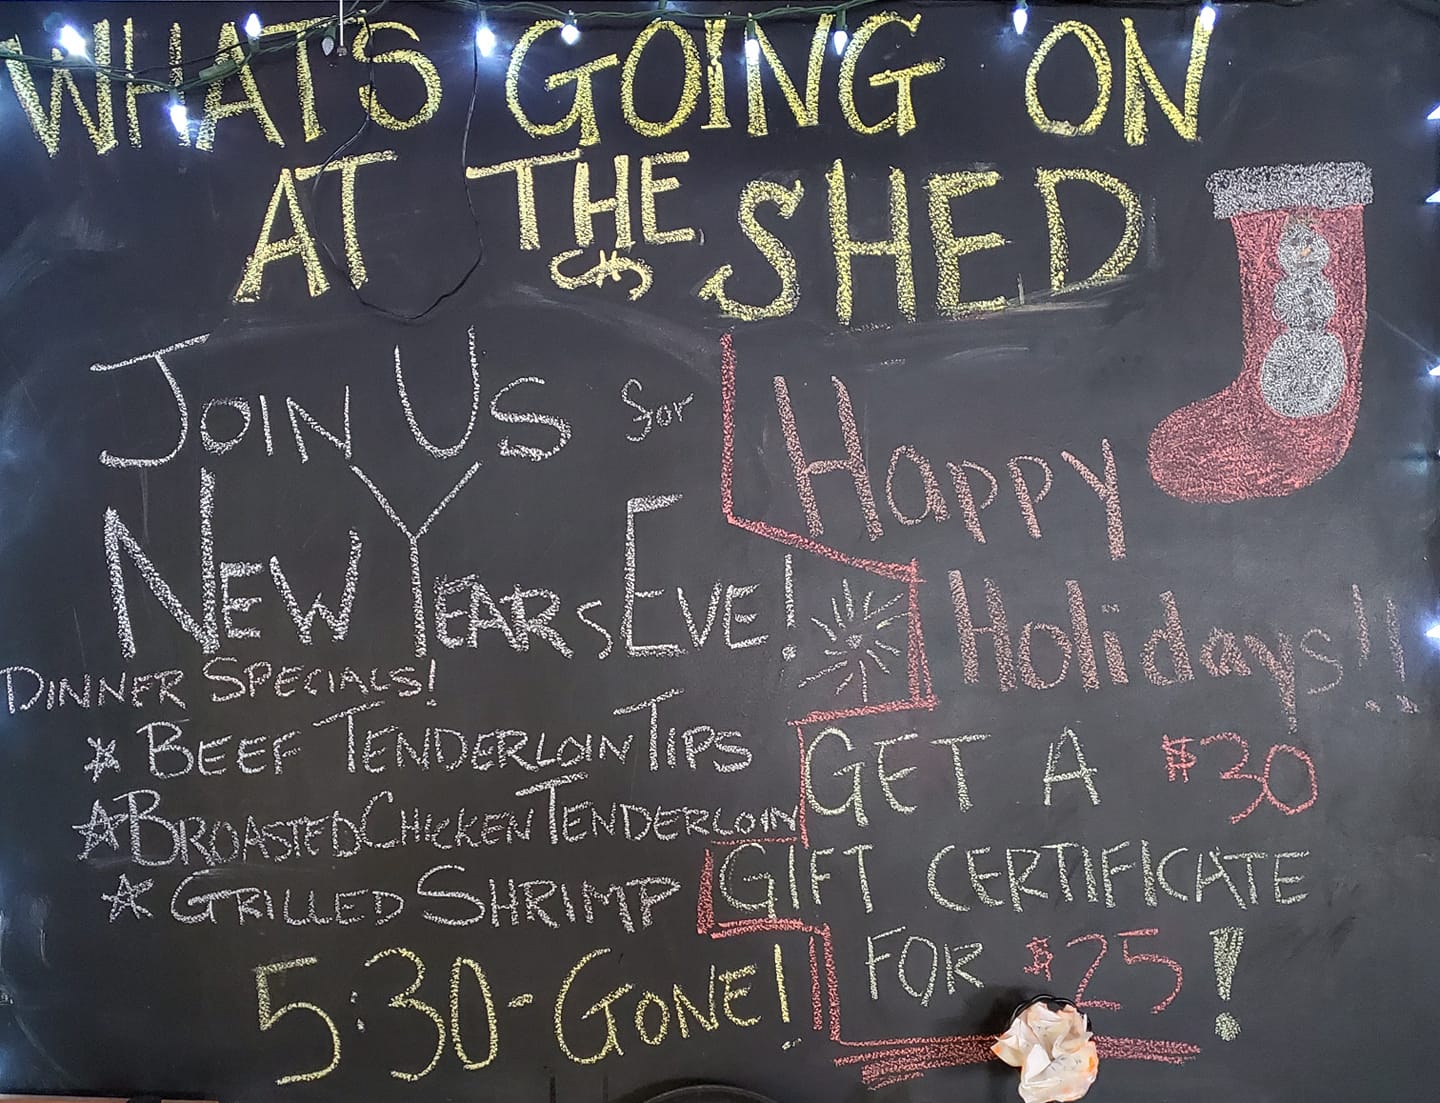 WHATS GOING ON
AT THE SHED
JOIN US for
NEW YEARS EVE!
DINNER SPECIALS!
BEEF TENDERLOIN TIPS
BROASTED CHICKEN TENDERLOIN
GRILLED SHRIMP
5:30-GONE!
Happy
Holidays!!
GET A $30
GIFT CERTIFICATE
FOR $25!